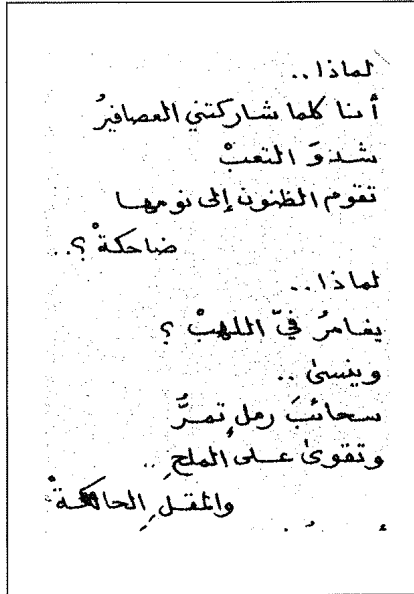 لماذا..
أنا كلما شاركتني العصافيرُ
شدوَ التعبْ
تقوم الظنون إلى نومها
ضاحكةْ ؟..
لماذا..
يغامرُ فيّ اللهبْ ؟
وينسىٰ ..
سحائبَ رملٍ تمرُّ
وتقوىٰ على الملحِ ..
والمقلِ الحالكةْ